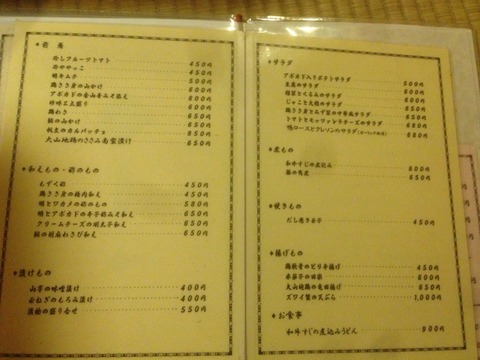 ・前菜
冷しフルーツトマト 450円
冷ややっこ 450円
明キムチ 450円
鶏ささ身の山かけ 800円
アボカドの金山寺みそ添え 800円
珍味三点盛り 800円
鶏わさ 650円
鮪の山かけ 650円
帆立のカルパッチョ 850円
大山地鶏のささみ南蛮漬け 650円
・和えもの・酢のもの
もずく酢 450円
鶏ささ身の梅肉和え 450円
明とワカメの酢のもの 580円
明とアボカドの辛子酢みそ和え 650円
クリームチーズの明太子和え 650円
鮪の胡麻わさび和え 650円
・漬けもの
山芋の味噌漬け 400円
金ねぎのもろみ漬け 400円
漬物の盛り合せ 550円
・サラダ
アボカド入りポテトサラダ 500円
生湯のサラダ 600円
胡麻とくるみのサラダ 600円
じゃこと大根のサラダ 600円
鶏ささ身とみず菜の中華風サラダ 650円
トマトとモッツァレラチーズのサラダ 680円
鴨ロースとクレソンのサラダ 880円
・煮もの
和牛すじの煮込み 800円
豚の角煮 850円
・焼きもの
だし巻き玉子 450円
・揚げもの
鶏軟骨のピリ辛揚げ 450円
大山地鶏の竜田揚げ 650円
ズワイ蟹の天ぷら 1,000円
・お食事
和牛すじの煮込みうどん 900円